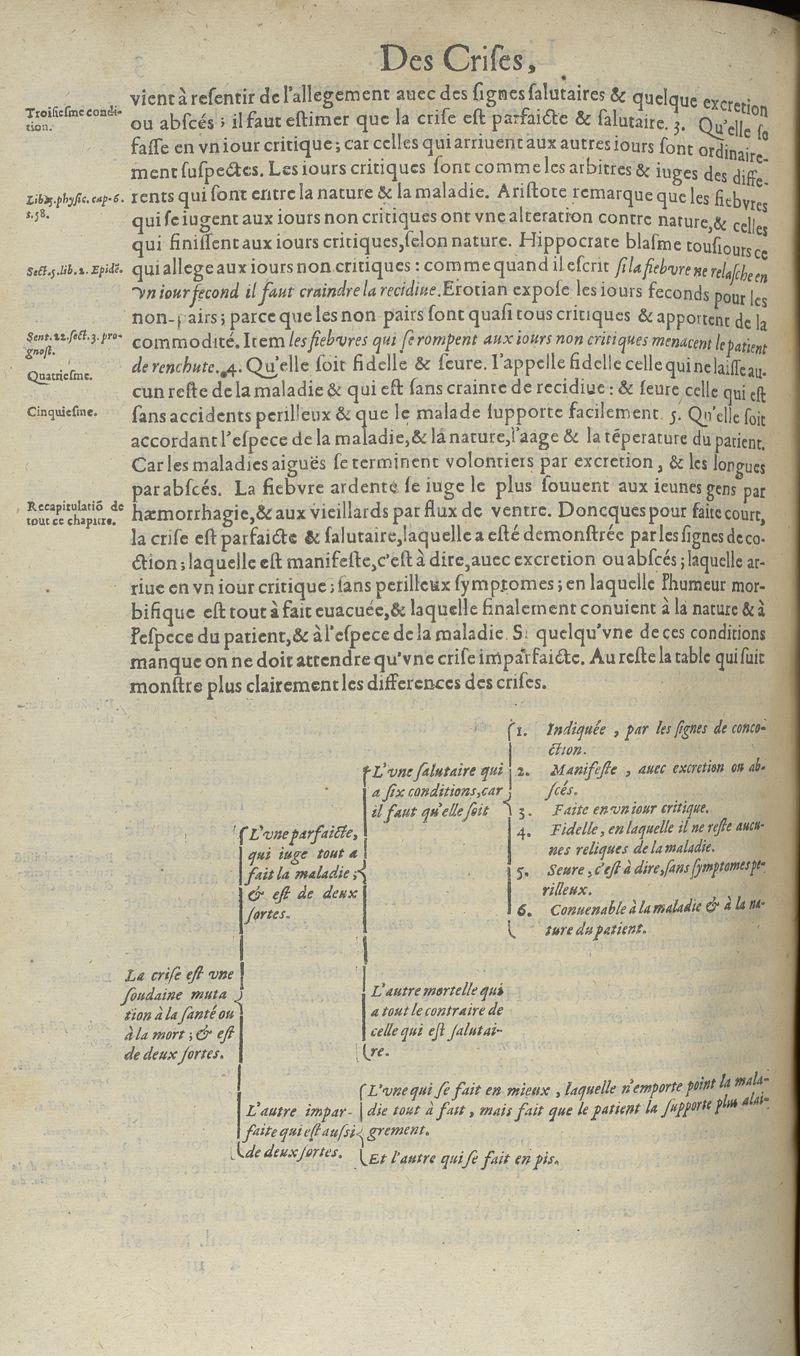 Des Crises,
vient à resentir de l'allegement auec des signes salutaires & quelque excretion
Troisiesme condi-
tion.
ou abscés ; il faut estimer que la crise est parfaicte & salutaire. 3. Qu'elle se
fasse en vn iour critique ; car celles qui arriuent aux autres iours sont ordinaire-
ment suspectes. Les iours critiques sont comme les arbitres & iuges des diffe-
rents qui sont entre la nature & la maladie. Aristote remarque que les fiebvres
s. 58.
qui se iugent aux iours non critiques ont vne alteration contre nature, & celles
qui finissent aux iours critiques, selon nature. Hippocrate blasme tousiours ce
Sect. 5. lib. 2. Epidē.
qui allege aux iours non critiques : comme quand il escrit si la fiebvre ne relasche en
vn iour fecond il faut craindre la recidiue. Erotian expose les iours feconds pour les
non-pairs ; parce que les non pairs sont quasi tous critiques & apportent de la
Sent. 22. sect. 3. pro-
gnost.
commodité. Item les fiebvres qui se rompent aux iours non critiques menacent le patient
de renchute. 4. Qu'elle soit fidelle & seure. I'appelle fidelle celle qui ne laisse au-
Quatriesme.
cun reste de la maladie & qui est sans crainte de recidiue : & seure celle qui est
Cinquiesme.
sans accidents perilleux & que le malade supporte facilement. 5. Qu'elle soit
accordant l'espece de la maladie, & la nature, l'aage & la tēperature du patient.
Car les maladies aiguës se terminent volontiers par excretion, & les longues
par abscés. La fiebvre ardente se iuge le plus souuent aux ieunes gens par
Recapitulatiō de
tout ce chapitre.
hæmorrhagie, & aux vieillards par flux de ventre. Doncques pour faite court,
la crise est parfaicte & salutaire, laquelle a esté demonstrée par les signes de co-
ction ; laquelle est manifeste, c'est à dire, auec excretion ou abscés ; laquelle ar-
riue en vn iour critique ; sans perilleux symptomes ; en laquelle l'humeur mor-
bifique est tout à fait euacuée, & laquelle finalement conuient à la nature & à
l'espece du patient, & à l'espece de la maladie. Si quelqu'vne de ces conditions
manque on ne doit attendre qu'vne crise imparfaicte. Au reste la table qui suit
monstre plus clairement les differences des crises.
La crise est vne
soudaine muta
tion à la santé ou
à la mort ; & est
de deux sortes.
L'vne parfaicte,
qui iuge tout a
fait la maladie ;
& est de deux
sortes.
L'vne salutaire qui
a six conditions, car
il faut qu'elle soit
1. Indiquée, par les signes de conco-
ction.
2. Manifeste, auec excretion ou ab-
scés.
3. Faite en vn iour critique.
4. Fidelle, en laquelle il ne reste aucu-
nes reliques de la maladie.
5. Seure, c'est à dire, sans symptomes pe-
rilleux.
6. Conuenable à la maladie & à la na-
ture du patient.
L'autre mortelle qui
a tout le contraire de
celle qui est salutai-
re.
L'autre impar-
faite qui est aussi
de deux sortes.
L'vne qui se fait en mieux, laquelle n'emporte point la mala-
die tout à fait, mais fait que le patient la supporte plus alai-
grement.
Et l'autre qui se fait en pis.